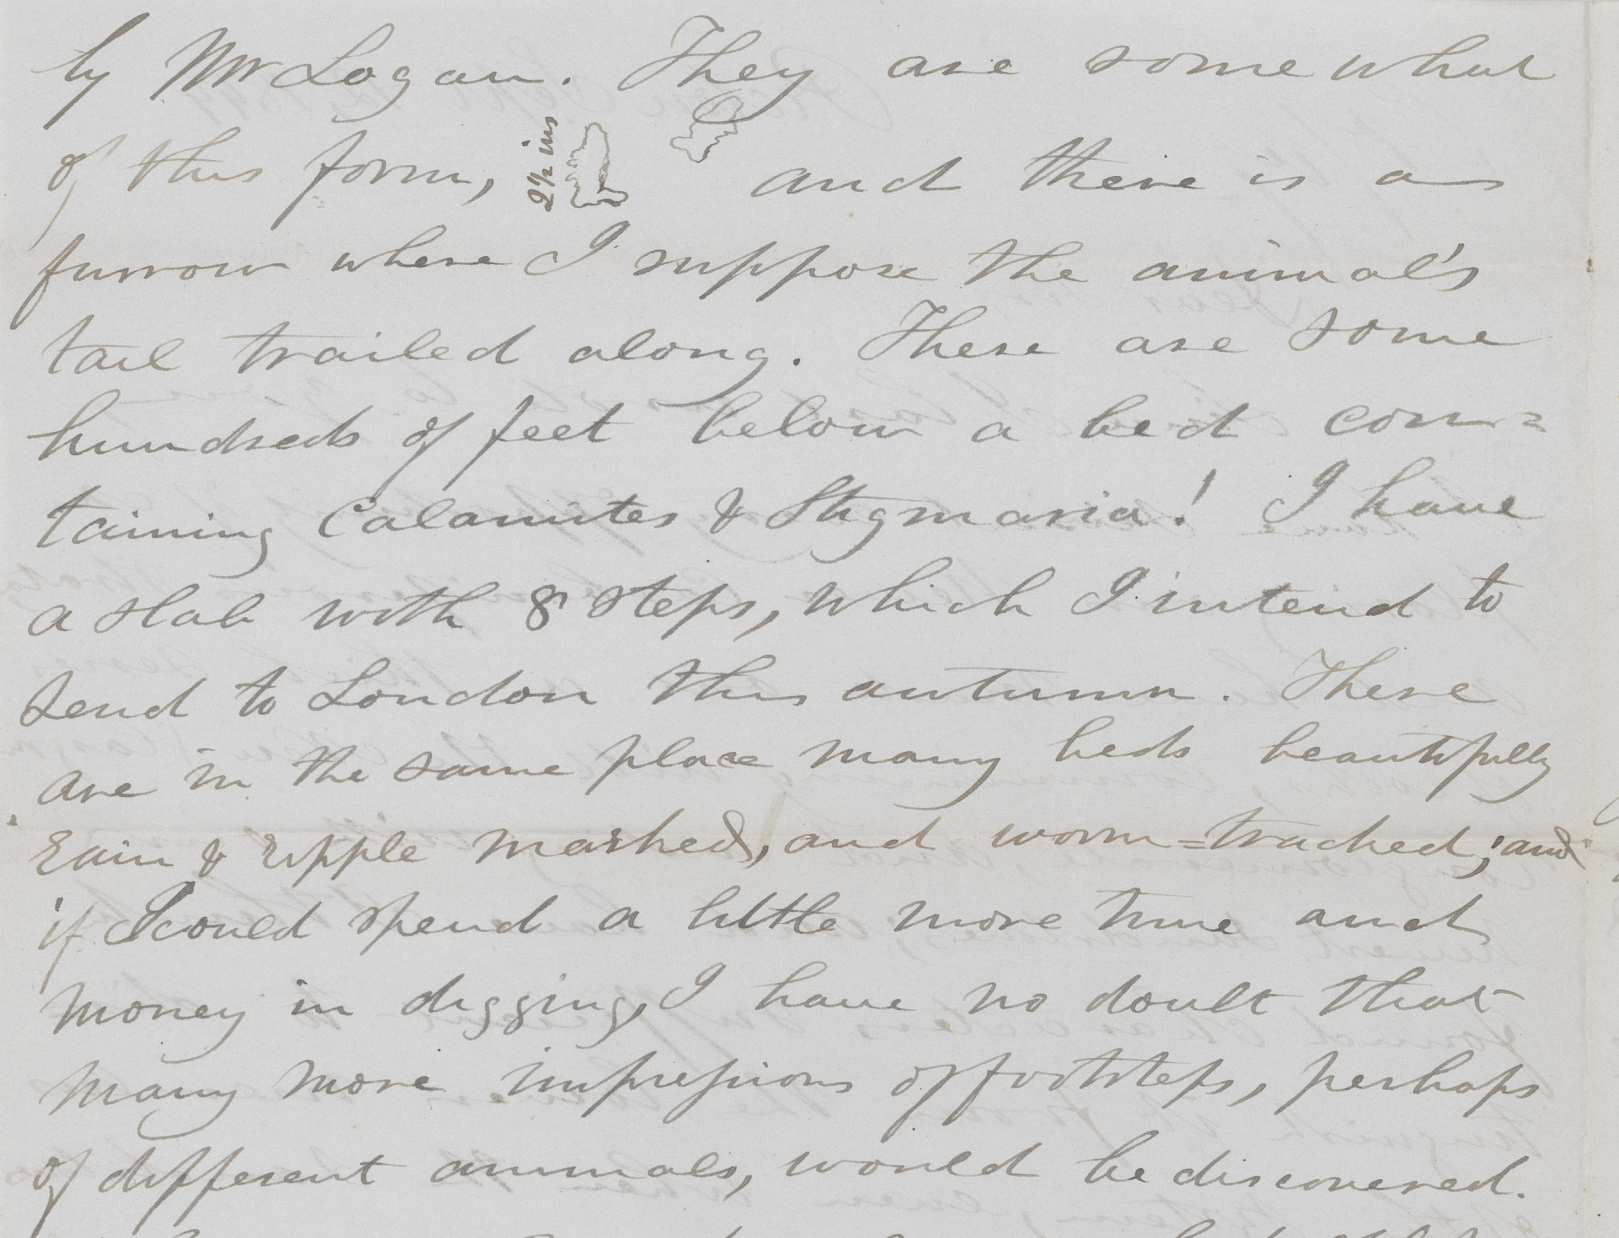 by Mr Logan. They are somewhat
of this form, 2½ ins and there is a
furrow where I suppose the animal's
tail trailed along. These are some
hundreds of feet below a bed con=
taining Calamites & Stigmaria! I have
a slab with 8 steps, which I intend to
send to London this autumn. There
are in the same place many beds beautifully
rain & ripple marked, and worm=tracked; and
if I could spend a little more time and
money in digging, I have no doubt that
many more impressions of footsteps, perhaps
of different animals, would be discovered.